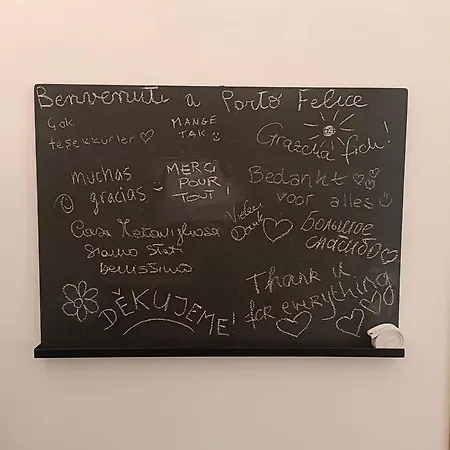 Benvenuti a Porto Felice
Çok
teşekkürler
MANGE
TAK
Grazcha fich!
muchas
gracias
MERCI
POUR
TOUT!
Bedankt
voor alles
Vielen
Dank
Casa Meravigliosa
Siamo stati
benissimo
Большое
спасибо
DĚKUJEME!
Thank u
for everything